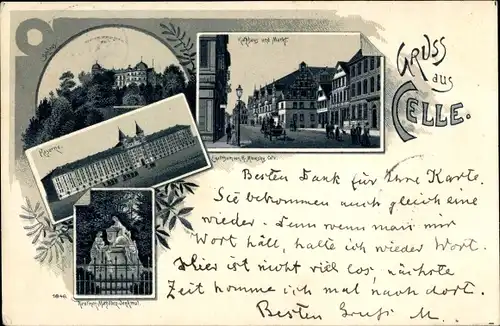 Rathaus und Markt.
GRUSS
aus
CELLE.
Schloss
Kaserne.
Königin Mathilden-Denkmal.
Besten Dank für Ihre Karte.
Sie bekommen auch gleich eine
wieder. Denn wenn man mir
Wort hält, halte ich wieder Wort.
Hier ist nicht viel los, nächste
Zeit komme ich mal nach dort.
Besten Gruß M.